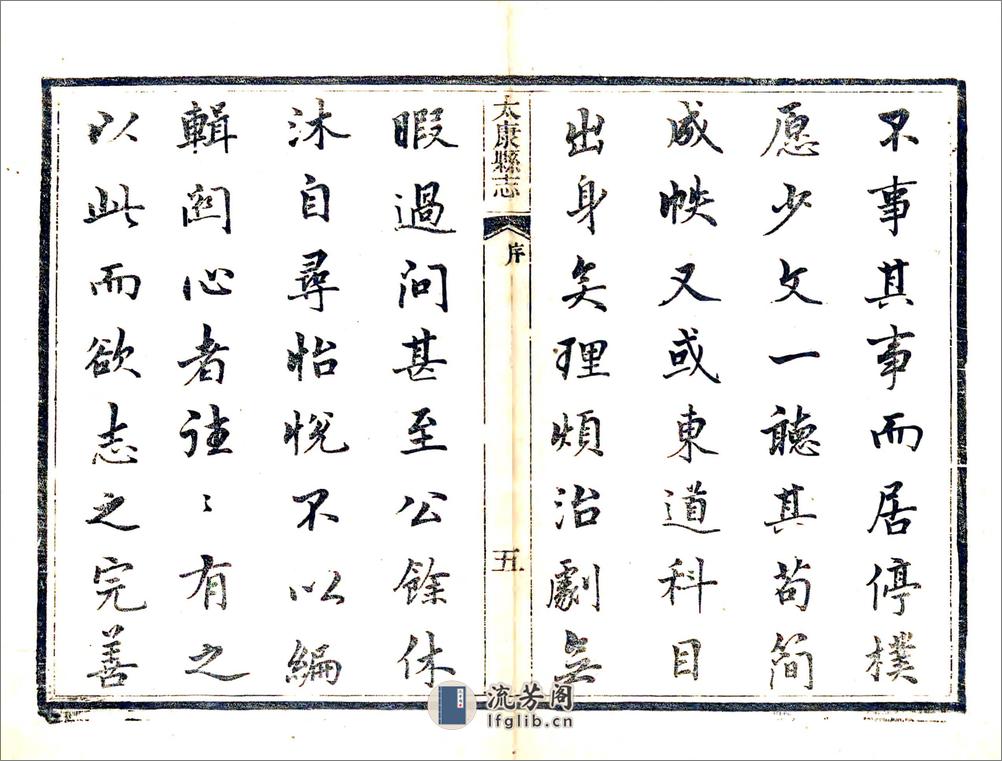 不事其事而居停樸
愿少文一聽其苟簡
成帙又或東道科目
出身矣理煩治劇無
太康縣志
序
五
暇過問甚至公餘休
沐自尋怡悅不以編
輯関心者往〻有之
以此而欲志之完善
流芳阁
lfglib.cn